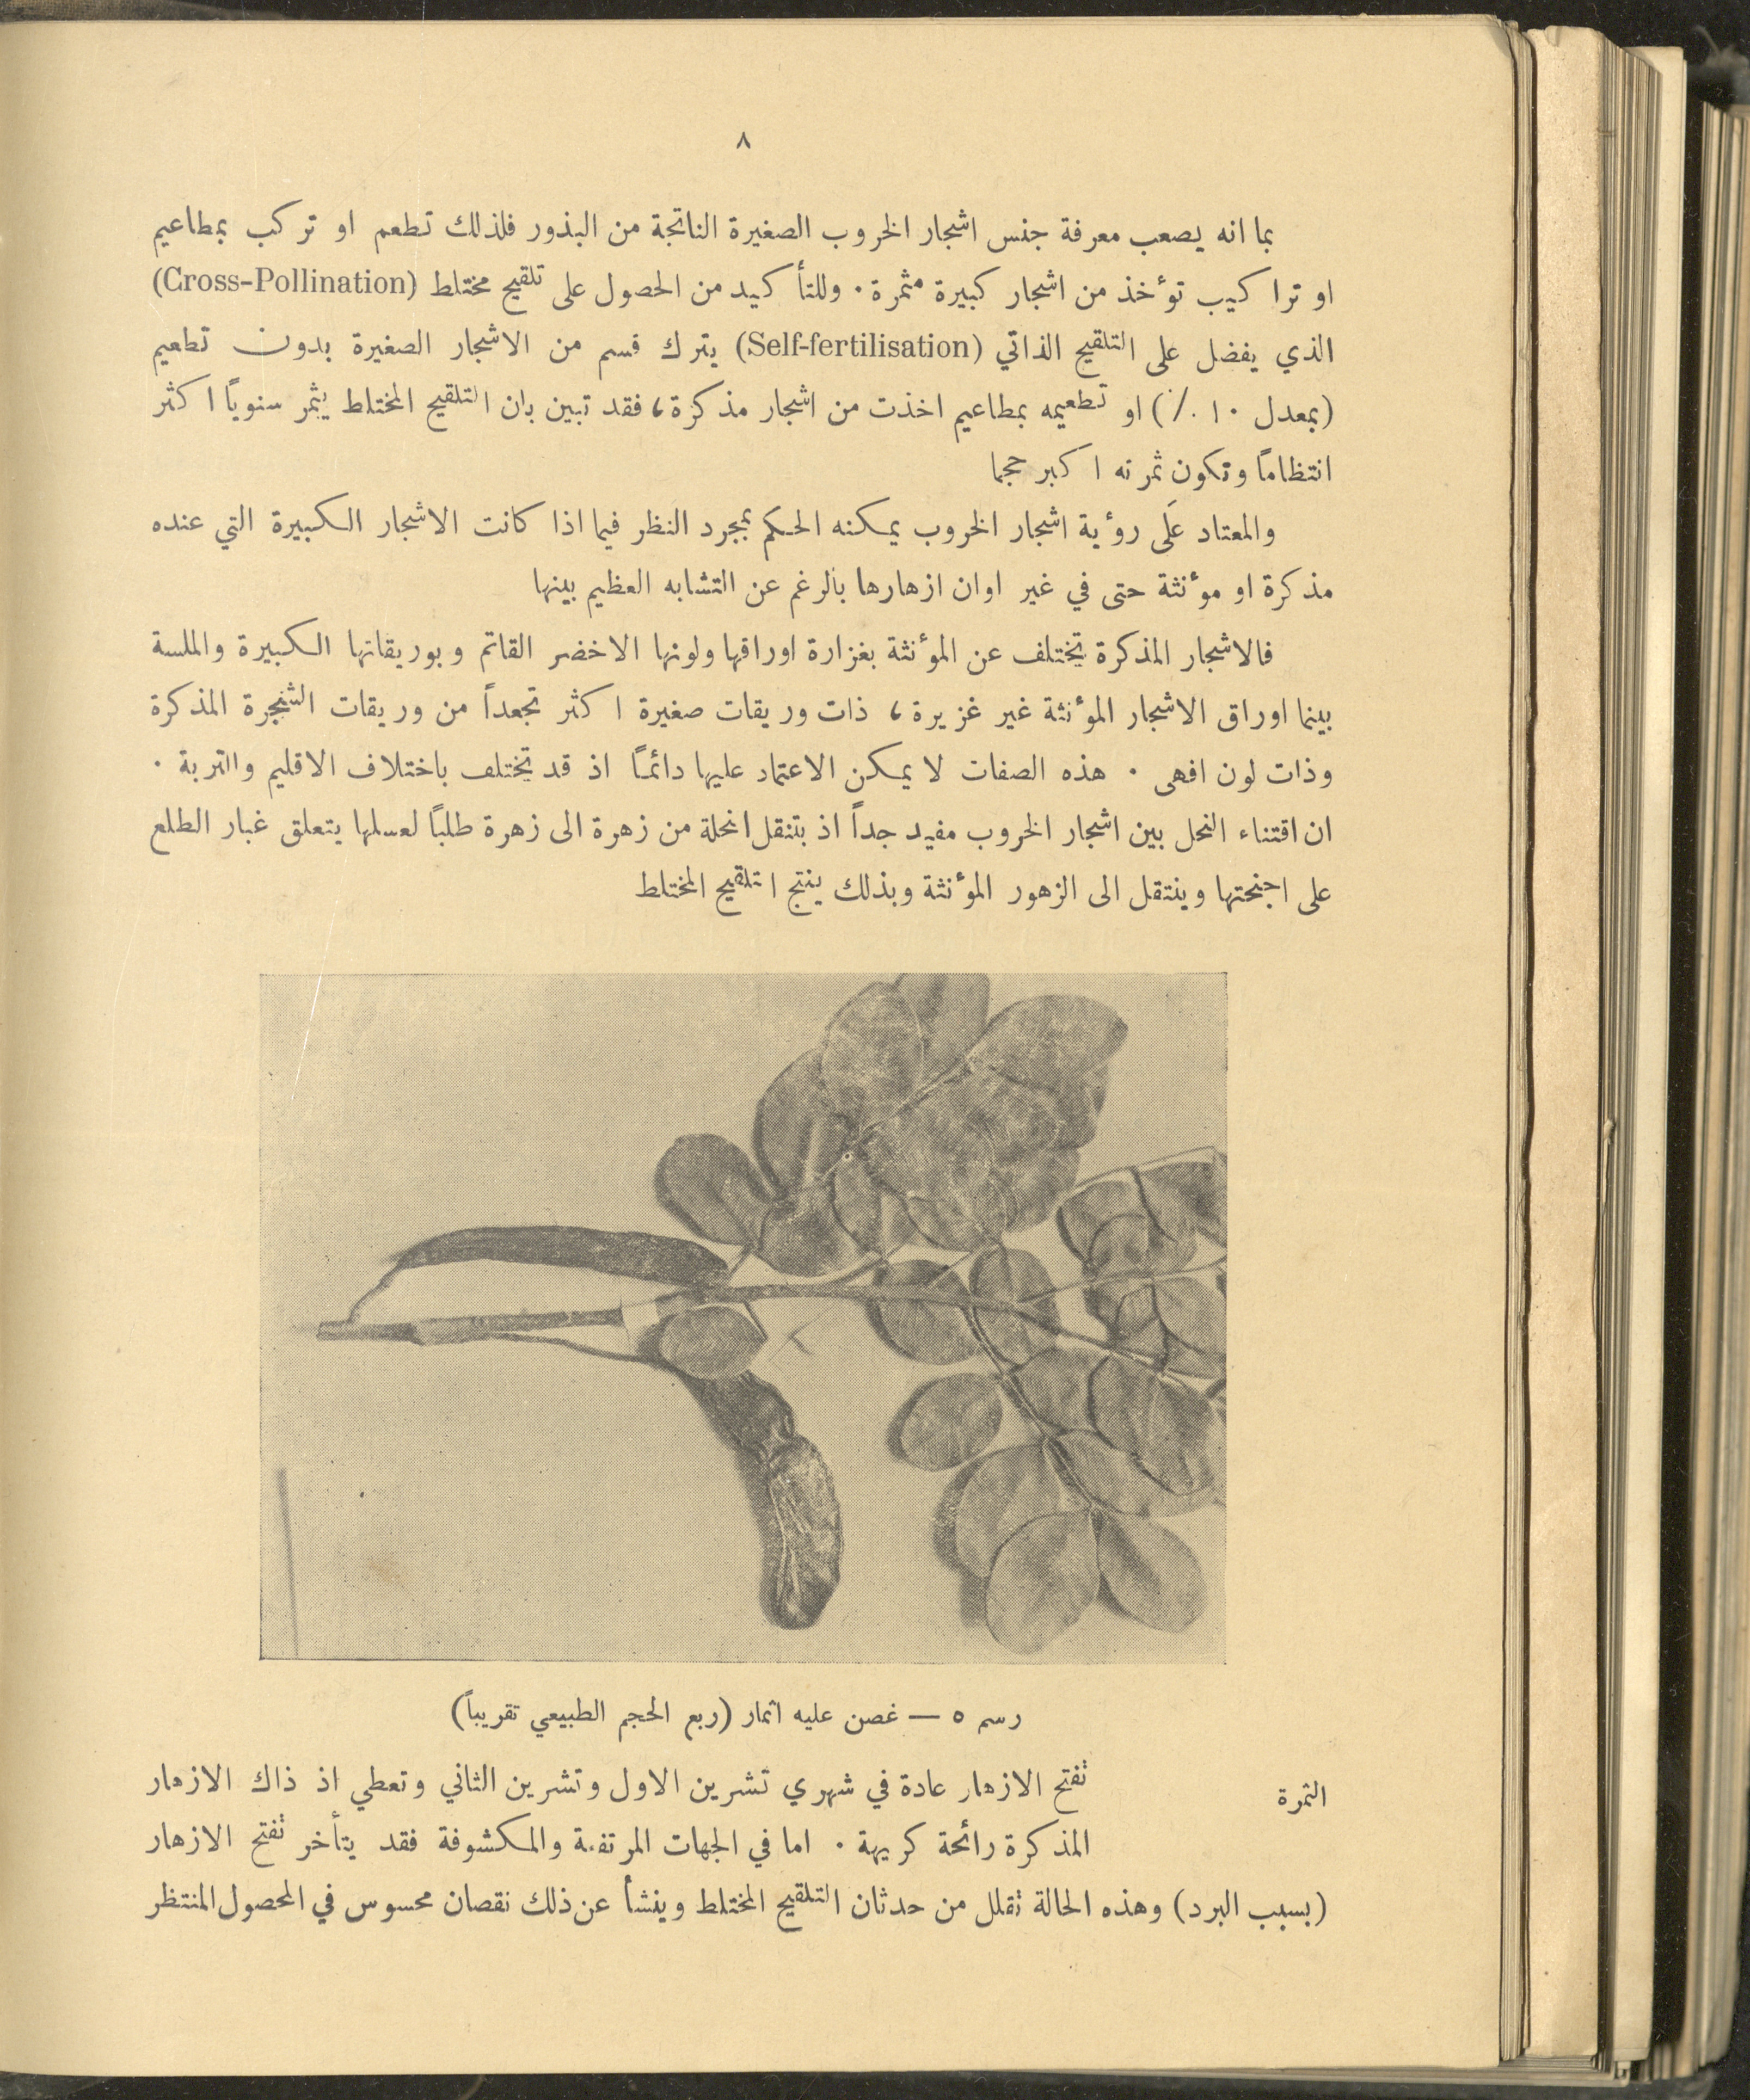 ٨
بما انه يصعب معرفة جنس اشجار الخروب الصغيرة الناتجة من البذور فلذلك تطعم او تركب بمطاعيم
او تراكيب تؤخذ من اشجار كبيرة مثمرة. وللتأكيد من الحصول على تلقيح مختلط (Cross-Pollination)
الذي يفضل على التلقيح الذاتي (Self-fertilisation) يترك قسم من الاشجار الصغيرة بدون تطعيم
(بمعدل ١٠ ٪) او تطعيمه بمطاعيم اخذت من اشجار مذكرة، فقد تبين بان التلقيح المختلط يثمر سنوياً اكثر
انتظاماً وتكون ثمرته اكبر حجما
والمعتاد عَلَى رؤية اشجار الخروب يمكنه الحكم بمجرد النظر فيما اذا كانت الاشجار الكبيرة التي عنده
مذكرة او مؤنثة حتى في غير اوان ازهارها بالرغم عن التشابه العظيم بينها
فالاشجار المذكرة تختلف عن المؤنثة بغزارة اوراقها ولونها الاخضر القاتم وبوريقاتها الكبيرة والملسة
بينما اوراق الاشجار المؤنثة غير غزيرة، ذات وريقات صغيرة اكثر تجعداً من وريقات الشجرة المذكرة
وذات لون افهى. هذه الصفات لا يمكن الاعتماد عليها دائماً اذ قد تختلف باختلاف الاقليم والتربة.
ان اقتناء النحل بين اشجار الخروب مفيد جداً اذ بتنقل النحلة من زهرة الى زهرة طلباً لعسلها يتعلق غبار الطلع
على اجنحتها وينتقل الى الزهور المؤنثة وبذلك ينتج التلقيح المختلط
رسم ٥ — غصن عليه اثمار (ربع الحجم الطبيعي تقريباً)
الثمرة
تفتح الازهار عادة في شهري تشرين الاول وتشرين الثاني وتعطي اذ ذاك الازهار
المذكرة رائحة كريهة. اما في الجهات المرتفعة والمكشوفة فقد يتأخر تفتح الازهار
(بسبب البرد) وهذه الحالة تقلل من حدثان التلقيح المختلط وينشأ عن ذلك نقصان محسوس في المحصول المنتظر